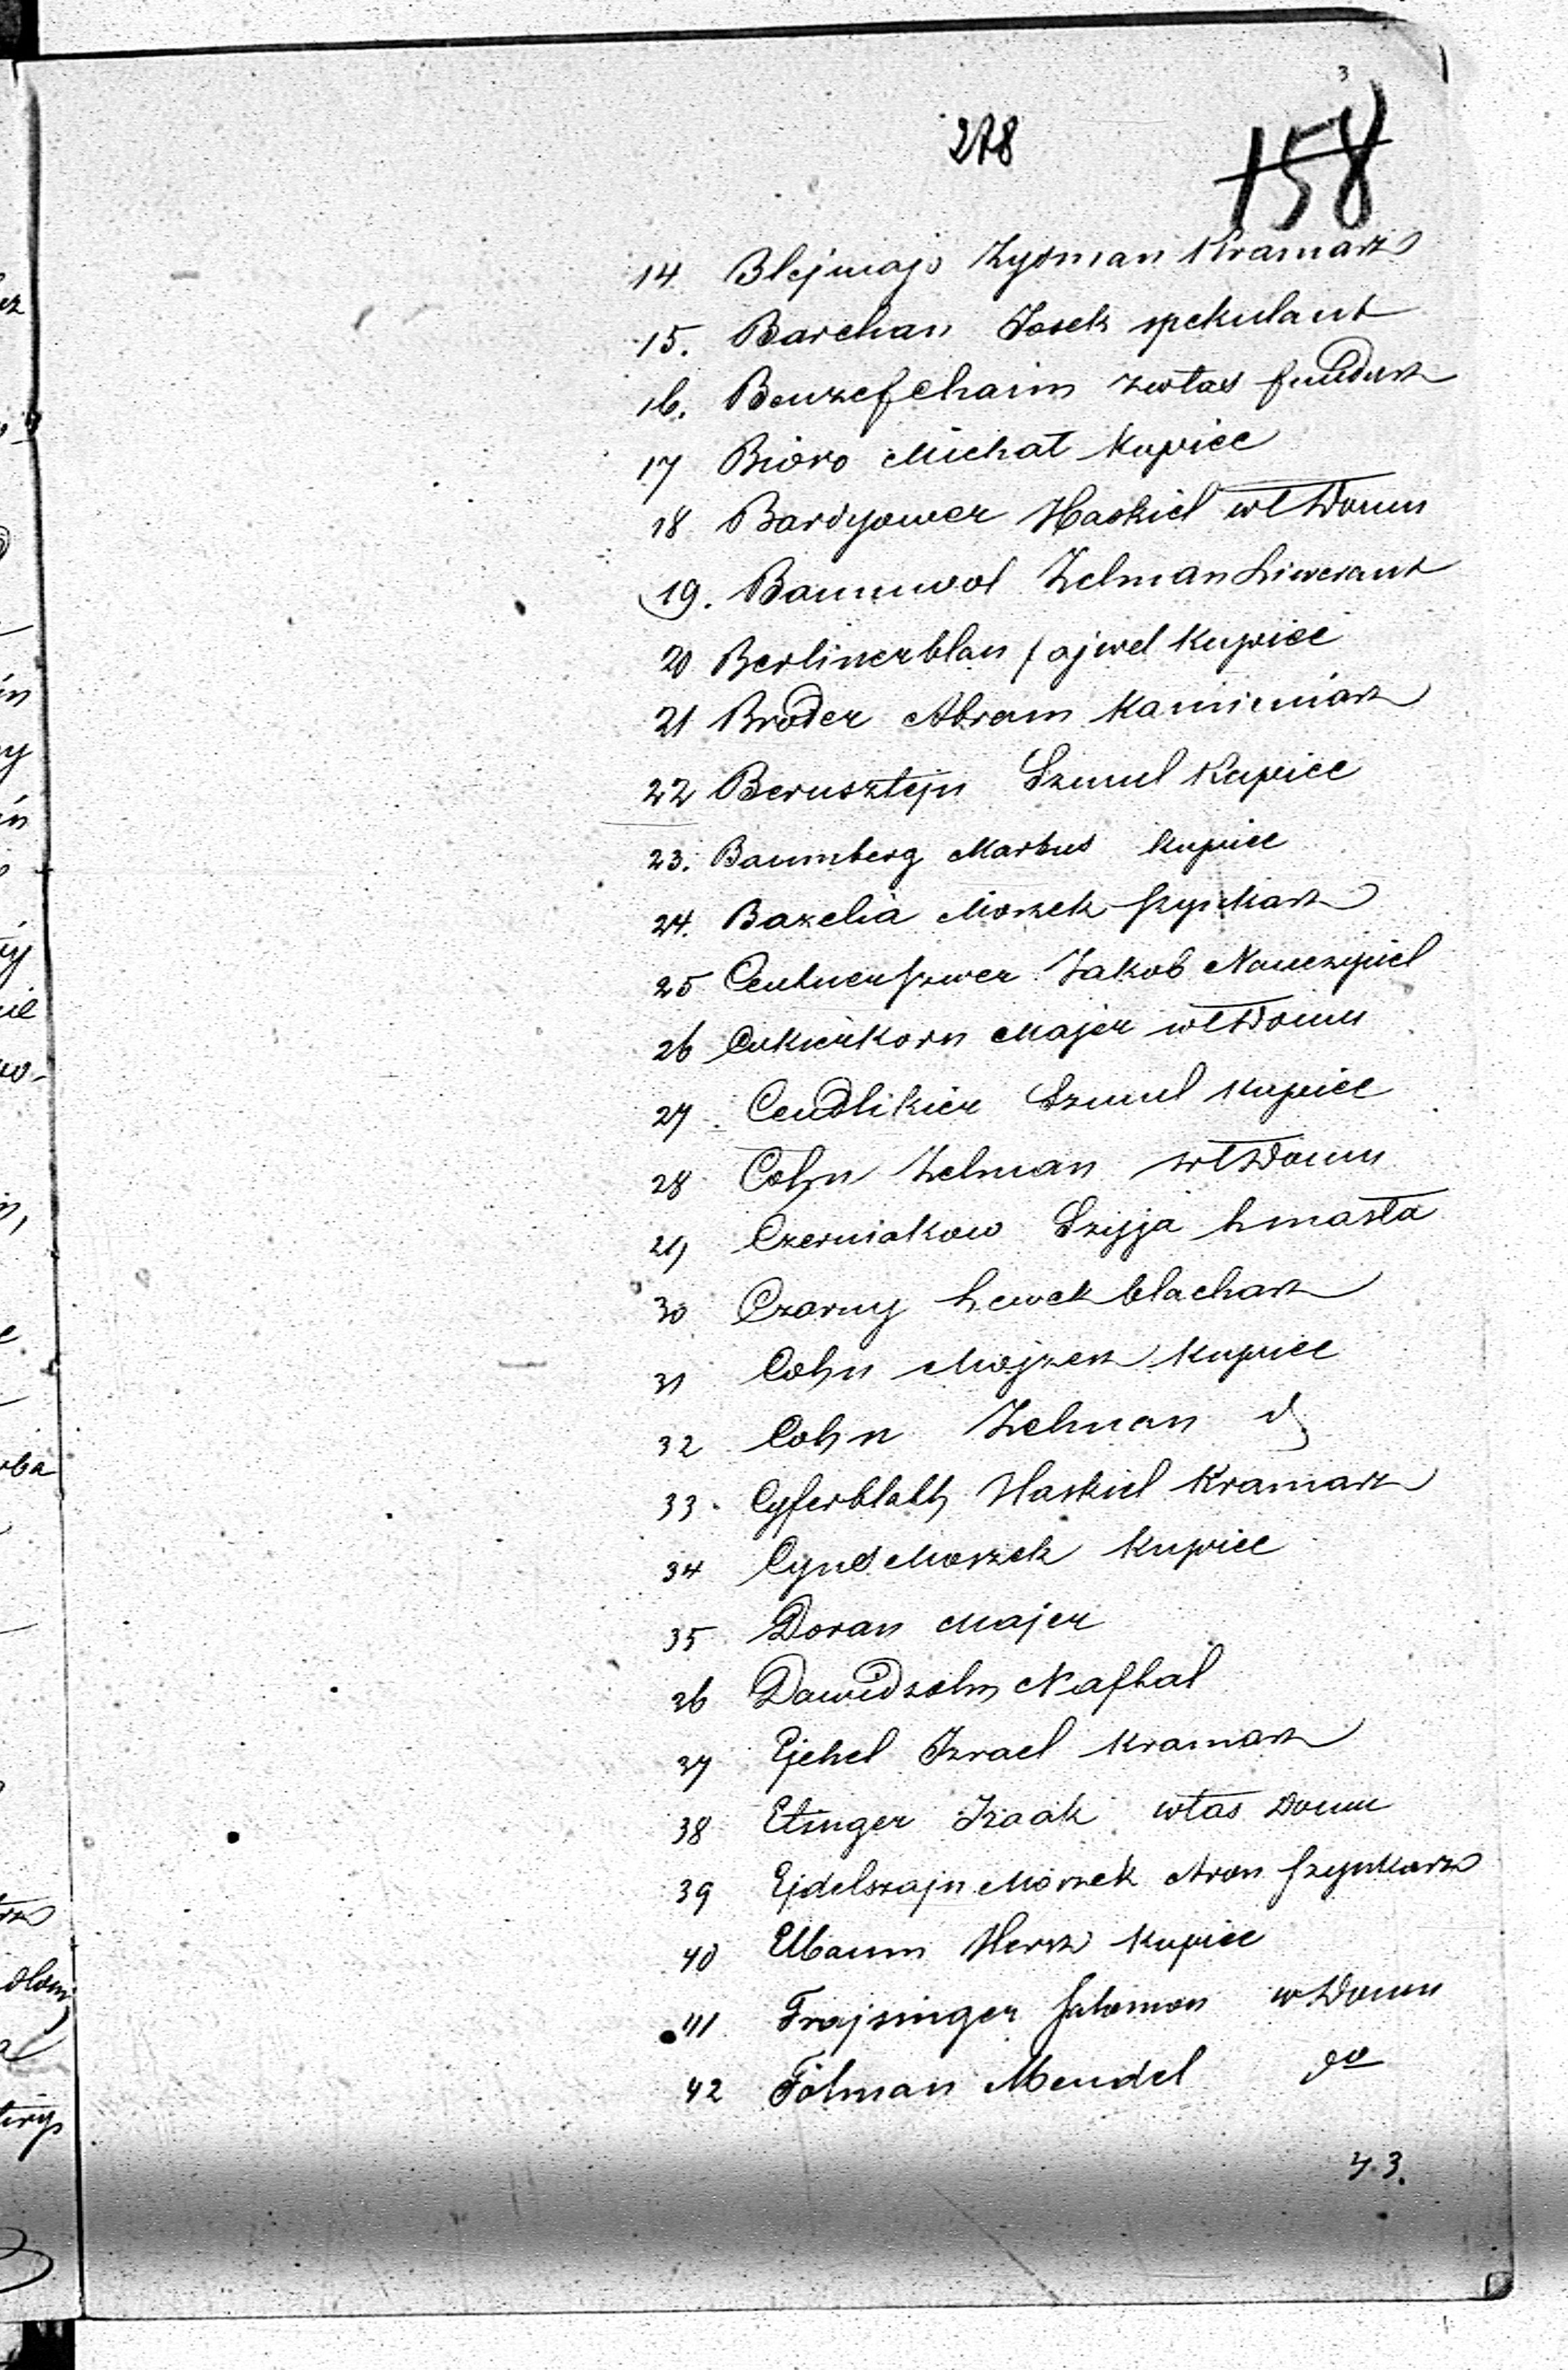 3
278
158
14 Blejwajs Zysman Kramarz
15. Barchan Josek spekulant
16. Benzef Chaim
17 Bioro Michał Kupiec
18 Bardyower Haskiel wł Domu
19. Baumwol Zelman Liwerant
20 Berlinerblau fajwel Kupiec
21 Broder Abram Kamieniarz
22 Bernsztejn Szmul Kupiec
23. Baumberg Markus kupiec
24. Bazelia Moszek szynkarz
25 Centnerszwer Jakob Nauczyciel
26 Cukierkorn Majer wł Domu
27. Cendlikier Szmul Kupiec
28 Cohn Zelman wł Domu
29 Czerniakow Szyja
30 Czarny Lewek blacharz
31 Cohn Mojżesz Kupiec
32 Cohn Zelman
33. Cyferblatt Haskiel Kramarz
34 Cynd Moszek Kupiec
35 Doran Majer
36 Dawidsohn Naftal
37 Ejchel Izrael Kramarz
38 Etinger Izaak włas Domu
39 Ejdelszajn Moszek Aron szynkarz
40 Elbaum Hersz Kupiec
41 Frajsinger Salomon w Domu
42 Folman Mendel do
43.